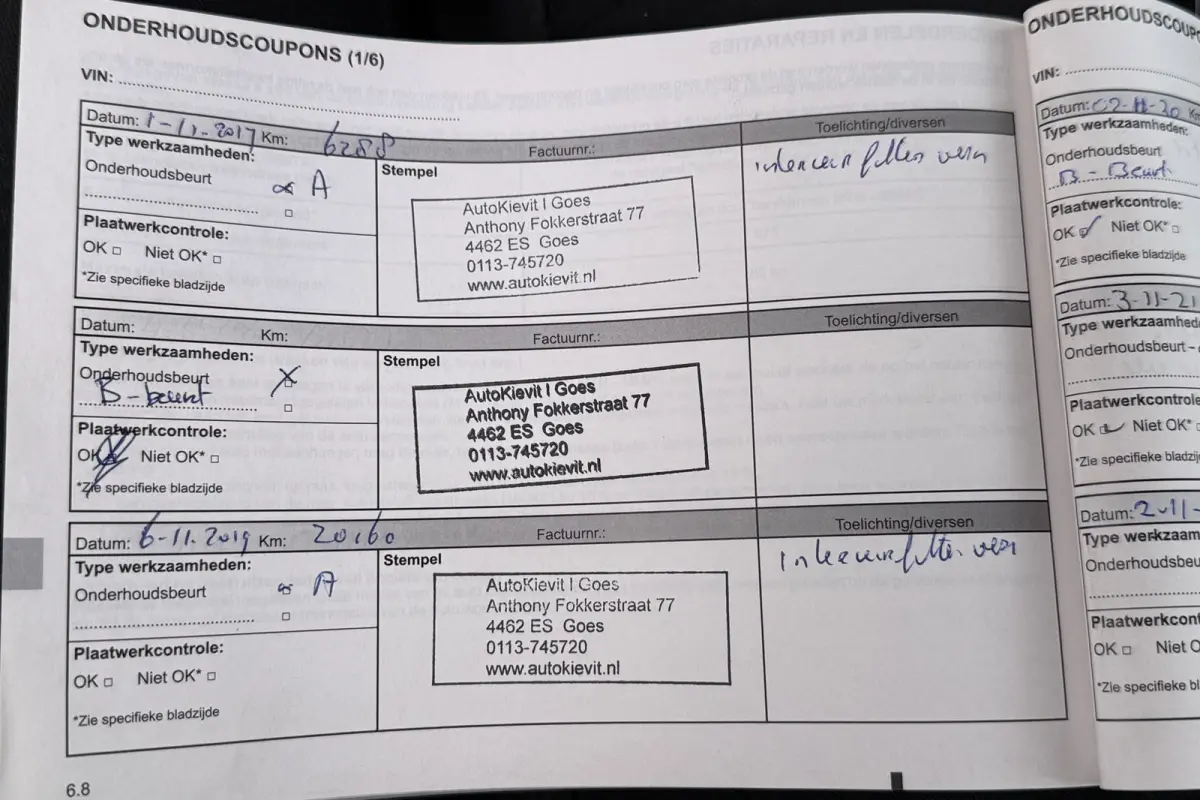 ONDERHOUDSCOUPONS (1/6)
VIN:
Datum: 1-11-2017 Km: 6288 Factuurnr.: Toelichting/diversen
Type werkzaamheden:
Onderhoudsbeurt A
Stempel
interieurfilter vern
AutoKievit I Goes
Anthony Fokkerstraat 77
4462 ES Goes
0113-745720
www.autokievit.nl
Plaatwerkcontrole:
OK Niet OK*
*Zie specifieke bladzijde
Datum: Km: Factuurnr.: Toelichting/diversen
Type werkzaamheden:
Onderhoudsbeurt
B-beurt
Stempel
AutoKievit I Goes
Anthony Fokkerstraat 77
4462 ES Goes
0113-745720
www.autokievit.nl
Plaatwerkcontrole:
OK Niet OK*
*Zie specifieke bladzijde
Datum: 6-11-2019 Km: 20160 Factuurnr.: Toelichting/diversen
Type werkzaamheden:
Onderhoudsbeurt A
Stempel
Interieurfilter vern
AutoKievit I Goes
Anthony Fokkerstraat 77
4462 ES Goes
0113-745720
www.autokievit.nl
Plaatwerkcontrole:
OK Niet OK*
*Zie specifieke bladzijde
6.8
ONDERHOUDSCOUP
VIN:
Datum: 02-11-20 K
Type werkzaamheden:
Onderhoudsbeurt
B-Beurt
Plaatwerkcontrole:
OK Niet OK*
*Zie specifieke bladzijde
Datum: 3-11-21
Type werkzaamhed
Onderhoudsbeurt
Plaatwerkcontrole
OK Niet OK*
*Zie specifieke bladzij
Datum: 2-11-
Type werkzaam
Onderhoudsbeu
Plaatwerkcont
OK Niet O
*Zie specifieke bl